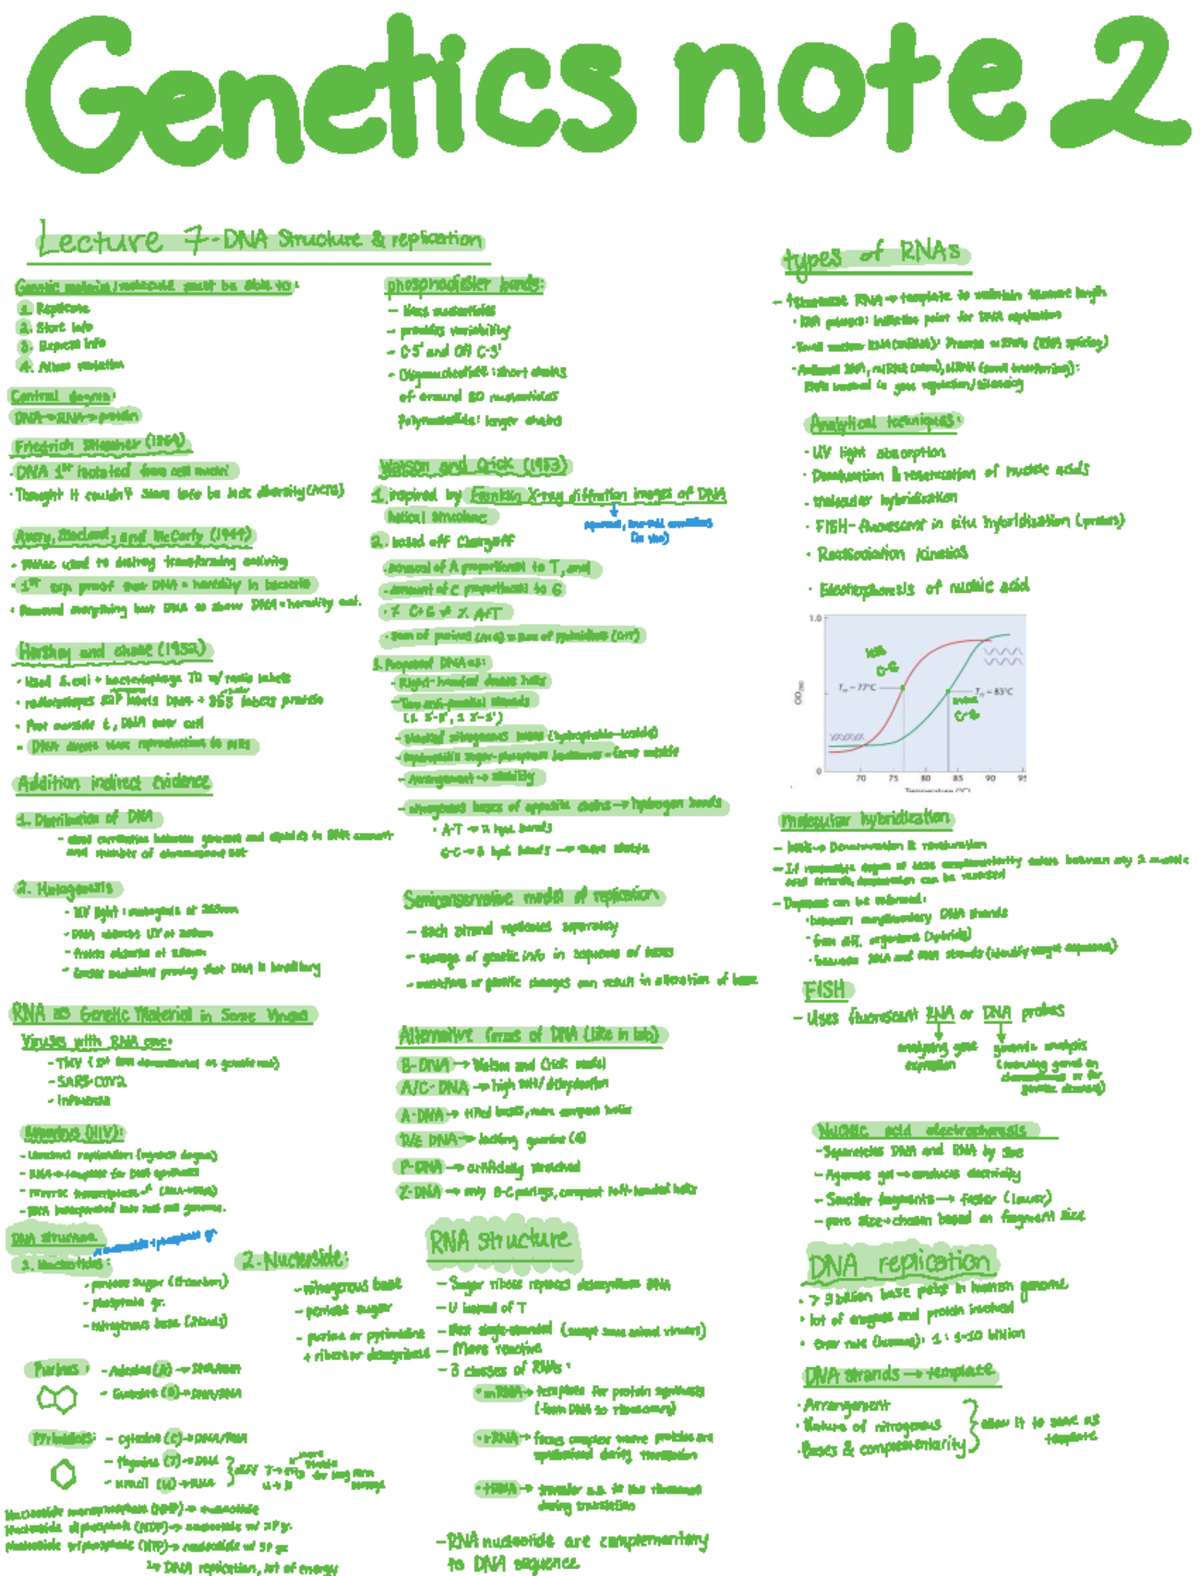 Genetics note 2
Lecture 7 - DNA Structure & replication
Genetic material/molecule must be able to:
1. Replicate
2. Store info
3. Express info
4. Allow variation
Central dogma:
DNA → RNA → protein
Friedrich Miescher (1869)
· DNA 1st isolated from cell nuclei
· Thought it couldn't store info bc lack diversity (ACTG)
Avery, MacLeod, and McCarty (1944)
· DNase used to destroy transforming activity
· 1st exp proof that DNA = heredity in bacteria
· Removed everything but DNA to show DNA = heredity mat.
Hershey and chase (1952)
· Used E.coli + bacteriophage T2 w/ radio labels
· radioisotopes 32P labels DNA + 35S labels protein
· Prot outside, DNA enter cell
· DNA directs virus reproduction
Addition indirect evidence
1. Distribution of DNA
- correlation between gametes and diploids in DNA amount
and number of chromosome set
2. Mutagenesis
- UV light: mutagenic at 260nm
- DNA absorbs UV at 260nm
- Protein absorbs at 280nm
proving that DNA is hereditary
RNA as Genetic Material in Some Viruses
Viruses with RNA core:
- TMV (1st RNA demonstrated as genetic mat)
- SARS-COV2
- Influenza
Retrovirus (HIV):
- Unusual replication (against dogma)
- RNA → template for DNA synthesis
- reverse transcriptase (RNA → DNA)
- DNA incorporated into host cell genome.
DNA structure
nucleoside + phosphate gr
1. Nucleotides:
- pentose sugar (5 carbon)
- phosphate gr.
- nitrogenous base (2 kinds)
2. Nucleoside:
- nitrogenous base
- pentose sugar
- purine or pyrimidine
+ ribose or deoxyribose
Purines: - Adenine (A) → DNA/RNA
- Guanine (G) → DNA/RNA
Pyrimidines: - Cytosine (C) → DNA/RNA
- Thymine (T) → DNA
- Uracil (U) → RNA
Nucleoside monophosphate (NMP) → nucleotide
Nucleoside diphosphate (NDP) → nucleoside w/ 2P gr.
Nucleoside triphosphate (NTP) → nucleoside w/ 3P gr
↳ DNA replication, lot of energy
phosphodiester bonds:
- links nucleotides
- provides variability
- C-5' and OH C-3'
- Oligonucleotide: short chains
of around 20 nucleotides
Polynucleotide: longer chains
Watson and Crick (1953)
1. inspired by Franklin X-ray diffration images of DNA
helical structure
2. based off Chargaff
· amount of A proportional to T, and
· amount of C proportional to G
· % C+G ≠ % A+T
· sum of purines (A+G) = sum of pyrimidines (C+T)
3. Proposed DNA as:
- Right-handed double helix
- Two anti-parallel strands
(1 3'-5', 1 5'-3')
- stacked nitrogenous bases (hydrophobic-inside)
- hydrophilic sugar-phosphate backbones - faces outside
- Arrangement → stability
- nitrogenous bases of opposite chains → hydrogen bonds
· A-T → 2 hyd. bonds
G-C → 3 hyd. bonds → more stable
Semiconservative model of replication
- each strand replicates separately
- storage of genetic info in sequence of bases
- mutations or genetic changes can result in alteration of base
Alternative forms of DNA (like in lab)
B-DNA → Watson and Crick model
A/C-DNA → high salt/dehydration
A-DNA → tilted bases, more compact helix
D/E DNA → lacking guanine (G)
P-DNA → artificially stretched
Z-DNA → only G-C pairings, compact left-handed helix
RNA structure
- Sugar ribose replaces deoxyribose DNA
- U instead of T
- Most single-stranded (except some animal viruses)
- More reactive
- 3 classes of RNAs:
· mRNA → template for protein synthesis
(from DNA to ribosomes)
· rRNA → forms complex where proteins are
synthesized during translation
· tRNA → transfer a.a. to the ribosomes
during translation
- RNA nucleotide are complementary
to DNA sequence
types of RNAs
- telomerase RNA → template to maintain telomere length
· RNA primers: initiation point for DNA replication
· Small nuclear RNA (snRNA): Process mRNAs (RNA splicing)
· Antisense RNA, miRNA (micro), siRNA (small interfering):
RNAs involved in gene regulation/silencing
Analytical techniques:
· UV light absorption
· Denaturation & renaturation of nucleic acids
· molecular hybridization
· FISH - fluorescent in situ hybridization (probes)
· Reassociation kinetics
· Electrophoresis of nucleic acid
1.0
OD260
0
less
C-G
Tm = 77°C
more
C-G
Tm = 83°C
70 75 80 85 90 95
Temperature (°C)
molecular hybridization
- basis → Denaturation & renaturation
- If reasonable degree of base complementarity exists between any 2 nucleic
acid strands, denaturation can be reversed
- Duplexes can be reformed:
· between complimentary DNA strands
· from diff. organisms (hybrids)
· between DNA and RNA strands (identify target sequences)
FISH
- Uses fluorescent RNA or DNA probes
analyzing gene
expression
genomic analysis
(locating genes on
chromosomes or for
genetic disease)
Nucleic acid electrophoresis
- Separates DNA and RNA by size
- Agarose gel → conducts electricity
- Smaller fragments → faster (lower)
- pore size → chosen based on fragment size
DNA replication
· > 3 billion base pairs in human genome
· lot of enzymes and protein involved
· error rate (human): 1 : 1-10 billion
DNA strands → template
· Arrangement
· Nature of nitrogenous
· Bases & complementarity
allow it to serve as
template